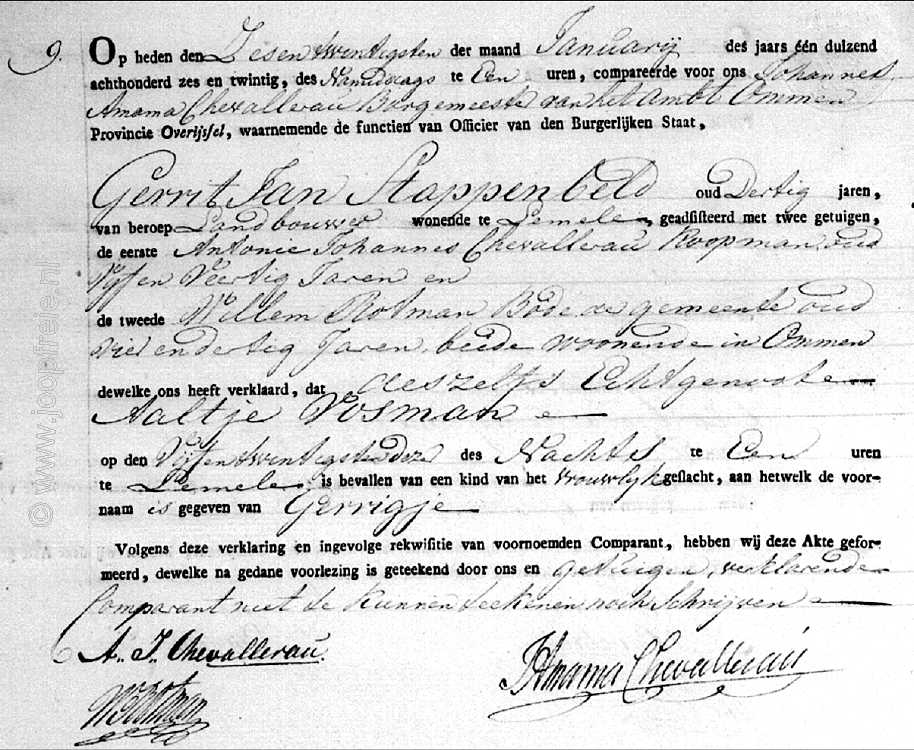 9. Op heden den Zesentwintigsten der maand Januarij des jaars één duizend
achthonderd zes en twintig, des Namiddags te Een uren, compareerde voor ons Johannes
Amama Chevallerau Burgemeester van het Ambt Ommen
Provincie Overijssel, waarnemende de functien van Officier van den Burgerlijken Staat,
Gerrit Jan Stappenbeld oud Dertig jaren,
van beroep Landbouwer wonende te Lemele, geadsisteerd met twee getuigen,
de eerste Antonie Johannes Chevallerau Koopman oud
Vijf en Veertig Jaren en
de tweede Willem Rotman Bode der gemeente oud
vier en dertig Jaren, beide woonende in Ommen
dewelke ons heeft verklaard, dat deszelfs Echtgenoote
Aaltje Vosman
op den Vijfentwintigsten dezer des Nachts te Een uren
te Lemele is bevallen van een kind van het vrouwlijk geslacht, aan hetwelk de voor-
naam is gegeven van Gerrigje
Volgens deze verklaring en ingevolge rekwisitie van voornoemden Comparant, hebben wij deze Akte gefor-
meerd, dewelke na gedane voorlezing is geteekend door ons en getuigen, verklarende
Comparant niet te kunnen teekenen noch Schrijven
A. J. Chevallerau.
JAmama Chevallerau
WRotman
© www.jooptreire.nl